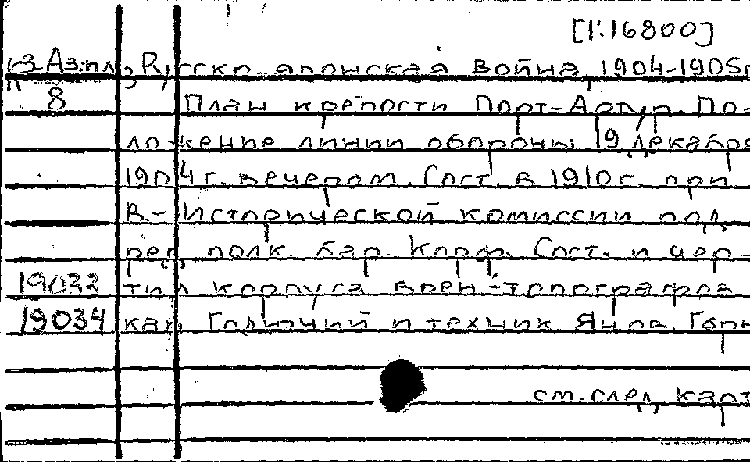 [1:16800]
К3 Аз.пл., Русско японская война, 1904-1905г
8 План крепости Порт-Артур. По-
ложение линии обороны 19 декабря
1904 г. вечером. Сост. в 1910 г. при
В-Исторической комиссии под
ред. полк. бар. Корф. Сост. и чер-
19033 тил корпуса воен-топографов
19034 кап. Галючий и техник Янов. Горн
см. след. карт